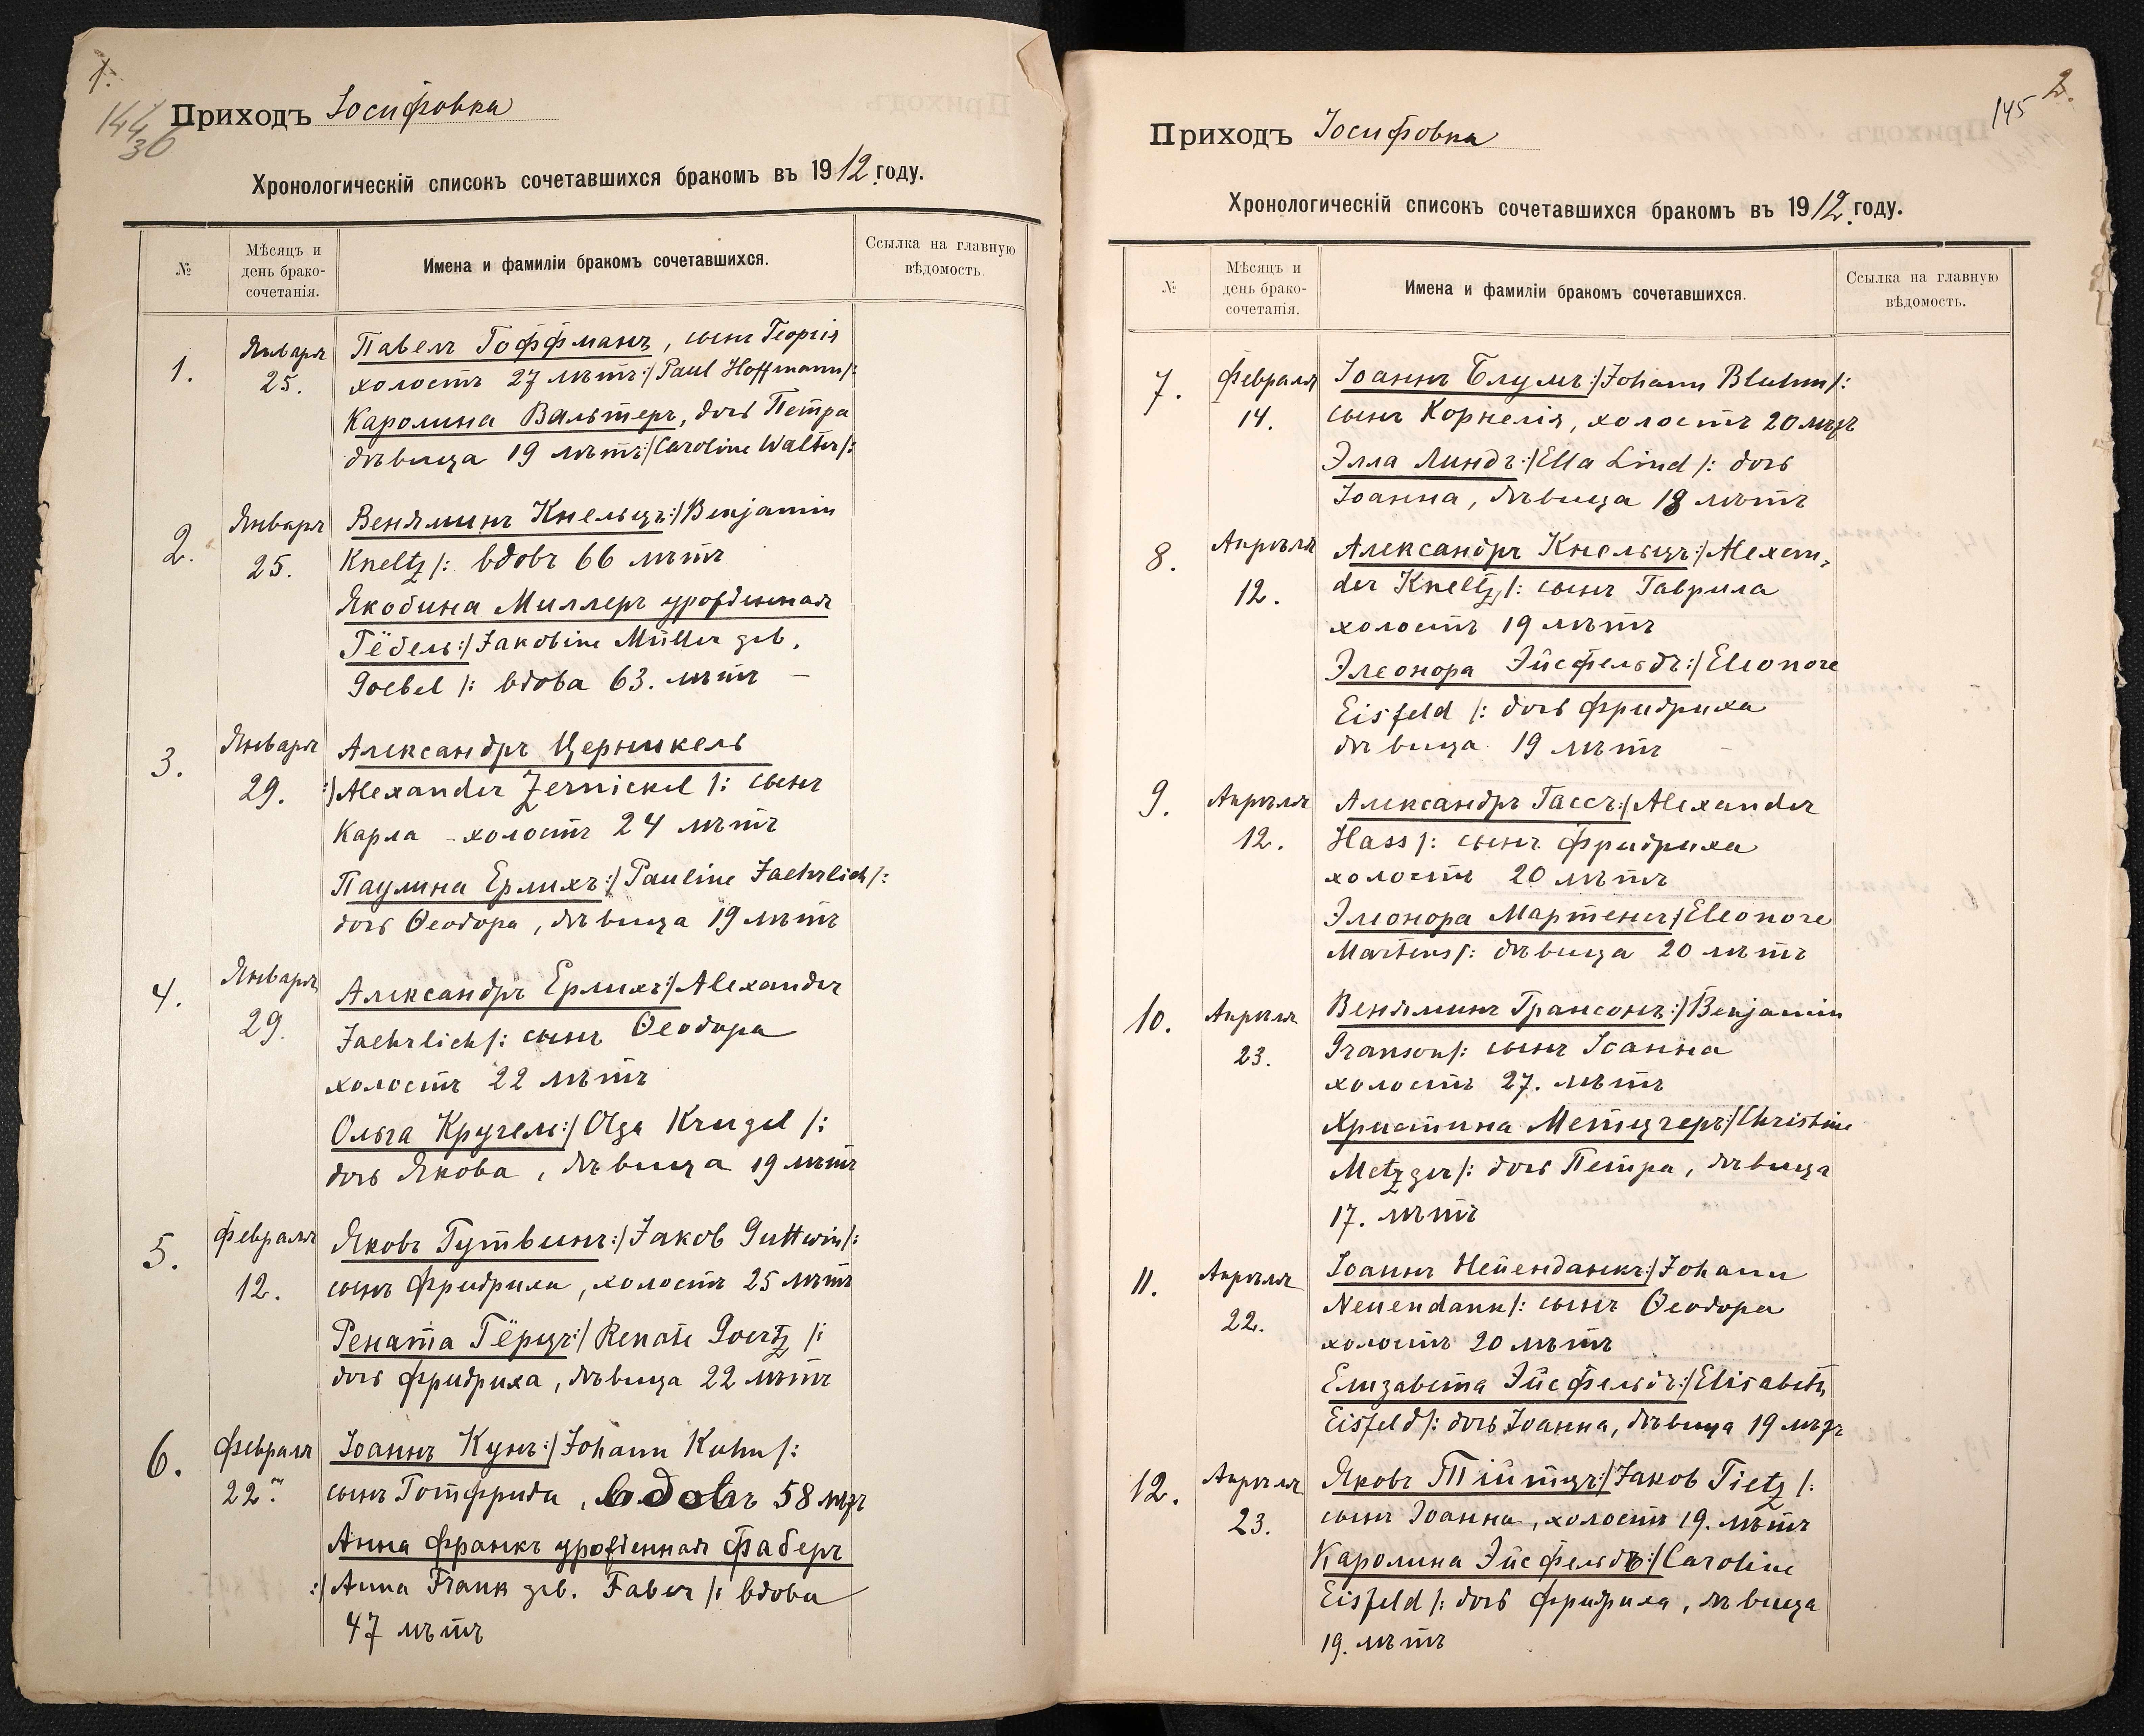 1.
144
36
Приходъ Іосифовка
Хронологическій списокъ сочетавшихся бракомъ въ 1912 году.
№
Мѣсяцъ и день брако-сочетанія.
Имена и фамиліи бракомъ сочетавшихся.
Ссылка на главную вѣдомость.
1. Января Павелъ Гоффманъ, сынъ Георгія
25. холостъ 27 лѣтъ :/ Paul Hoffmann /:
Каролина Вальтеръ, дочь Петра
дѣвица 19 лѣтъ :/ Caroline Walter /:
2. Января Веняминъ Кнельцъ :/ Benjamin
25. Kneltz /: вдовъ 66 лѣтъ
Якобина Миллеръ урожденная
Гёбель :/ Jakobine Müller geb.
Goebel /: вдова 63. лѣтъ –
3. Января Александръ Церникель
29. :/ Alexander Zernickel /: сынъ
Карла – холостъ 24 лѣтъ
Паулина Ерлихъ :/ Pauline Jaehrlich /:
дочь Ѳеодора, дѣвица 19 лѣтъ
4. Января Александръ Ерлихъ :/ Alexander
29. Jaehrlich /: сынъ Ѳеодора
холостъ 22 лѣтъ
Ольга Кругель :/ Olga Krugel /:
дочь Якова, дѣвица 19 лѣтъ
5. Февраля Яковъ Гутвинъ :/ Jakob Guttwin /:
12. сынъ Фридриха, холостъ 25 лѣтъ
Рената Гёрцъ :/ Renate Goertz /:
дочь Фридриха, дѣвица 22 лѣтъ
6. Февраля Іоаннъ Кунъ :/ Johann Kuhn /:
22. сынъ Готфрида, вдовъ 58 лѣтъ
Анна Франкъ урожденная Фаберъ
:/ Anna Frank geb. Faber /: вдова
47 лѣтъ
2.
145
Приходъ Іосифовка
Хронологическій списокъ сочетавшихся бракомъ въ 1912 году.
№
Мѣсяцъ и день брако-сочетанія.
Имена и фамиліи бракомъ сочетавшихся.
Ссылка на главную вѣдомость.
7. Февраля Іоаннъ Блумъ :/ Johann Bluhm /:
14. сынъ Корнелія, холостъ 20 лѣтъ
Элла Линдъ :/ Ella Lind /: дочь
Іоанна, дѣвица 18 лѣтъ
8. Апрѣля Александръ Кнельцъ :/ Alexan-
12. der Kneltz /: сынъ Гаврила
холостъ 19 лѣтъ
Элеонора Эйсфельдъ :/ Eleonore
Eisfeld /: дочь Фридриха
дѣвица 19 лѣтъ –
9. Апрѣля Александръ Гассъ :/ Alexander
12. Hass /: сынъ Фридриха
холостъ 20 лѣтъ
Элеонора Мартенсъ :/ Eleonore
Martens /: дѣвица 20 лѣтъ
10. Апрѣля Веняминъ Грансонъ :/ Benjamin
23. Granson /: сынъ Іоанна
холостъ 27. лѣтъ
Христина Метцгеръ :/ Christine
Metzger /: дочь Петра, дѣвица
17. лѣтъ
11. Апрѣля Іоаннъ Нейенданкъ :/ Johann
22. Neuendank /: сынъ Ѳеодора
холостъ 20 лѣтъ
Елизавета Эйсфельдъ :/ Elisabeth
Eisfeld /: дочь Іоанна, дѣвица 19 лѣтъ
12. Апрѣля Яковъ Тійтцъ :/ Jakob Tietz /:
23. сынъ Іоанна, холостъ 19. лѣтъ
Каролина Эйсфельдъ :/ Caroline
Eisfeld /: дочь Фридриха, дѣвица
19. лѣтъ